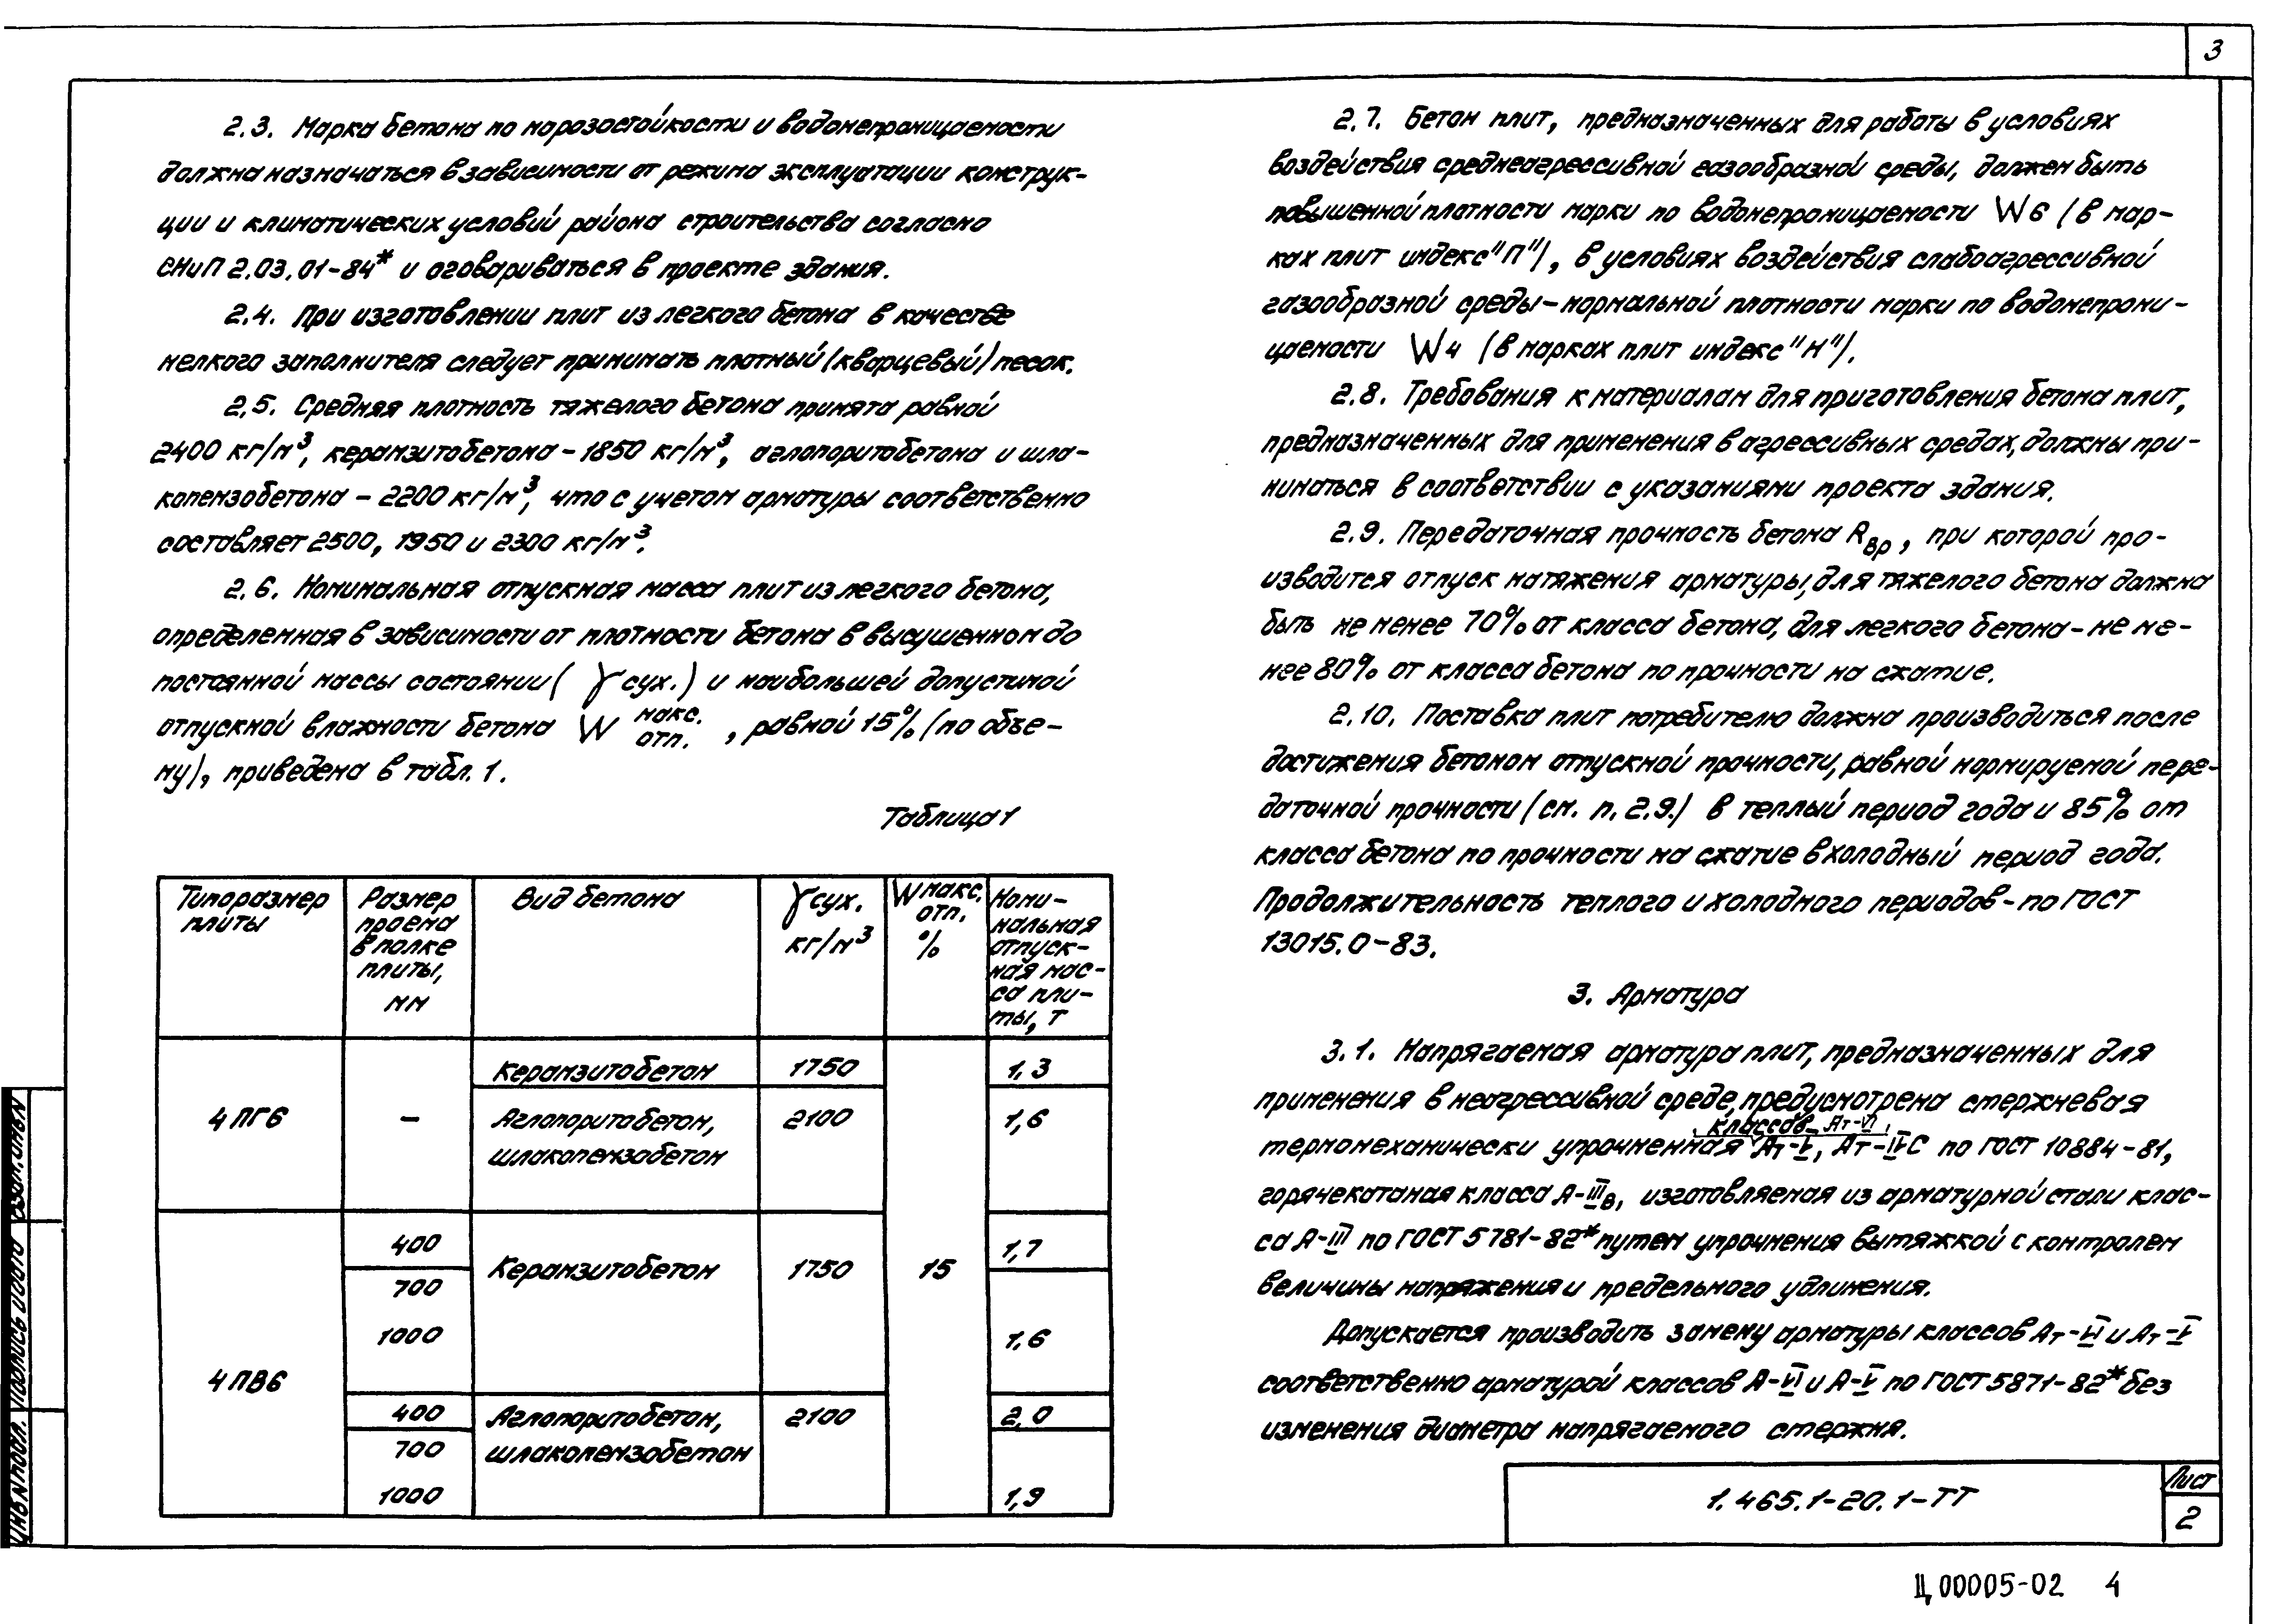 3
2.3. Марка бетона по морозостойкости и водонепроницаемости
должна назначаться в зависимости от режима эксплуатации конструк-
ции и климатических условий района строительства согласно
СНиП 2.03.01-84* и оговариваться в проекте здания.
2.4. При изготовлении плит из легкого бетона в качестве
мелкого заполнителя следует принимать плотный (кварцевый) песок.
2.5. Средняя плотность тяжелого бетона принята равной
2400 кг/м³, керамзитобетона - 1850 кг/м³, аглопоритобетона и шла-
копемзобетона - 2200 кг/м³, что с учетом арматуры соответственно
составляет 2500, 1950 и 2300 кг/м³.
2.6. Номинальная отпускная масса плит из легкого бетона,
определенная в зависимости от плотности бетона в высушенном до
постоянной массы состоянии (γ сух.) и наибольшей допустимой
отпускной влажности бетона W макс. отп., равной 15% (по объе-
му), приведена в табл. 1.
Таблица 1
Типоразмер плиты
Размер проема в полке плиты, мм
Вид бетона
γ сух. кг/м³
W макс. отп. %
Номи-
нальная
отпуск-
ная мас-
са пли-
ты, т
4ПГ6
–
Керамзитобетон
1750
15
1,3
Аглопоритобетон,
шлакопемзобетон
2100
1,6
4ПВ6
400
Керамзитобетон
1750
1,7
700
1000
1,6
400
Аглопоритобетон,
шлакопемзобетон
2100
2,0
700
1000
1,9
2.7. Бетон плит, предназначенных для работы в условиях
воздействия среднеагрессивной газообразной среды, должен быть
повышенной плотности марки по водонепроницаемости W6 (в мар-
ках плит индекс "П"), в условиях воздействия слабоагрессивной
газообразной среды - нормальной плотности марки по водонепрони-
цаемости W4 (в марках плит индекс "Н").
2.8. Требования к материалам для приготовления бетона плит,
предназначенных для применения в агрессивных средах, должны при-
ниматься в соответствии с указаниями проекта здания.
2.9. Передаточная прочность бетона Rвр, при которой про-
изводится отпуск натяжения арматуры, для тяжелого бетона должна
быть не менее 70% от класса бетона, для легкого бетона - не ме-
нее 80% от класса бетона по прочности на сжатие.
2.10. Поставка плит потребителю должна производиться после
достижения бетоном отпускной прочности, равной нормируемой пере-
даточной прочности (см. п. 2.9.) в теплый период года и 85% от
класса бетона по прочности на сжатие в холодный период года.
Продолжительность теплого и холодного периодов - по ГОСТ
13015.0-83.
3. Арматура
3.1. Напрягаемая арматура плит, предназначенных для
применения в неагрессивной среде, предусмотрена стержневая
термомеханически упрочненная классов Ат-VI, Ат-V, Ат-IVС по ГОСТ 10884-81,
горячекатаная класса А-IIIв, изготовляемая из арматурной стали клас-
са А-III по ГОСТ 5781-82* путем упрочнения вытяжкой с контролем
величины напряжения и предельного удлинения.
Допускается производить замену арматуры классов Ат-VI и Ат-V
соответственно арматурой классов А-VI и А-V по ГОСТ 5871-82* без
изменения диаметра напрягаемого стержня.
1.465.1-20.1-ТТ
Лист
2
Ц00005-02 4
Инв № подл.
Подпись и дата
Взам. инв №